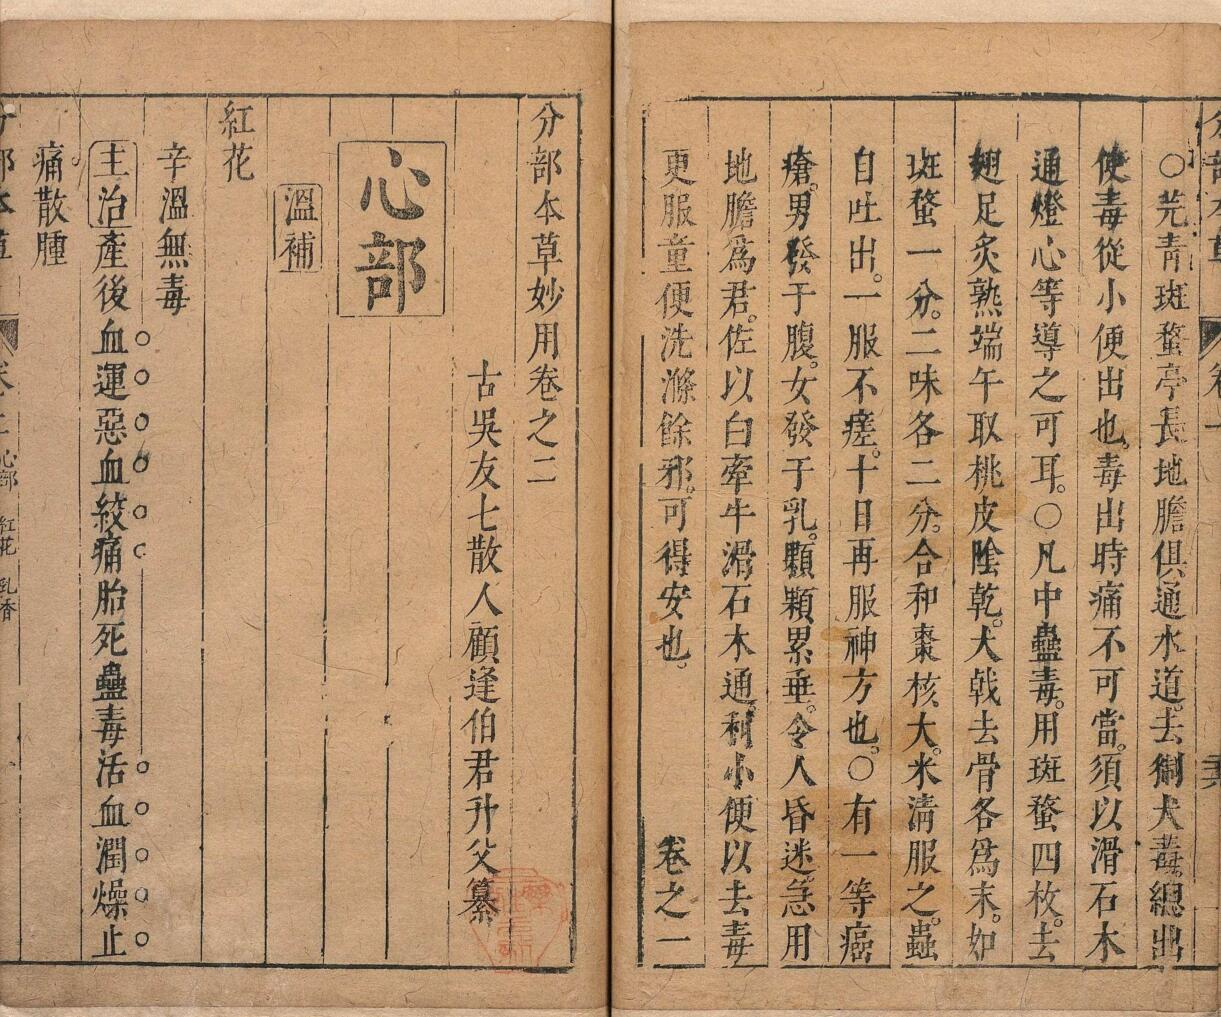 ○芫青斑蝥亭長地膽俱通水道。去猘犬毒。總出
使毒從小便出也。毒出時痛不可當。須以滑石木
通燈心等導之可耳。○凡中蠱毒。用斑蝥四枚。去
翅足炙熟端午取桃皮陰乾。大戟去骨各爲末。如
斑蝥一分。二味各二分。合和棗核大。米淸服之。蟲
自吐出。一服不瘥。十日再服神方也。○有一等癌
瘡。男發于腹。女發于乳。顆顆累垂。令人昏迷。急用
地膽爲君。佐以白牽牛滑石木通。利小便以去毒
更服童便洗滌餘邪。可得安也。
卷之一
分部本草妙用卷之二
古吳友七散人顧逢伯君升父纂
心部
溫補
紅花
辛溫無毒
主治產後血運惡血絞痛胎死蠱毒活血潤燥止
痛散腫
卷二 心部 紅花 乳香